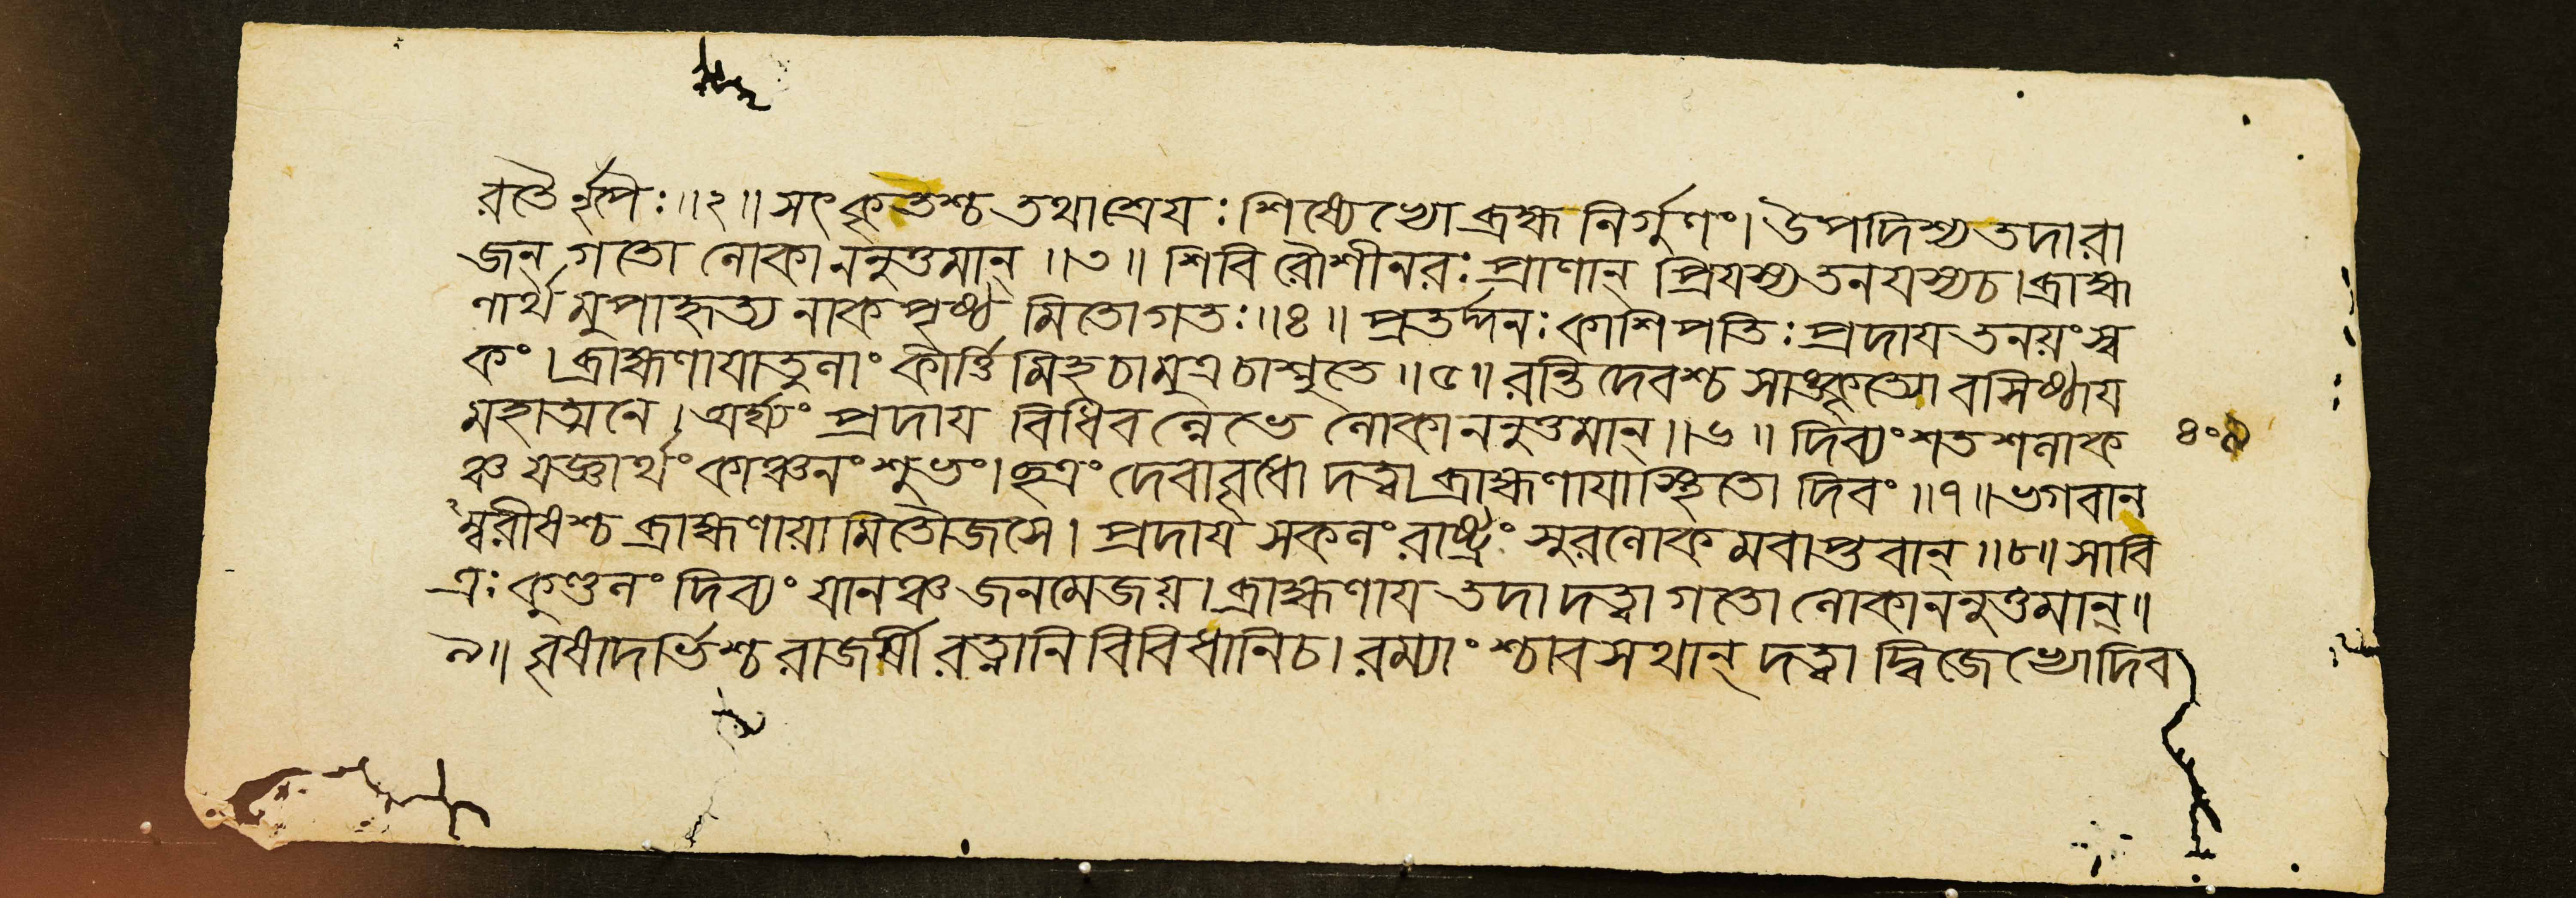 রতৈর্নৃপৈঃ॥২॥ সৎকৃতশ্চ তথাত্রেয়ঃ শিষ্যেভ্যো ব্রহ্ম নির্গুণং। উপদিশ্য তদা রা
জন্ গতো লোকাননুত্তমান্॥৩॥ শিবিরৌশীনরঃ প্রাণান্ প্রিযস্য তনযস্য চ। ব্রাহ্ম
ণার্থমুপাহৃত্য নাকপৃষ্ঠমিতো গতঃ॥৪॥ প্রতর্দ্দনঃ কাশিপতিঃ প্রদায তনয়ং স্ব
কং। ব্রাহ্মণাযাতুলাং কীর্ত্তিমিহ চামুত্র চাশ্নুতে॥৫॥ রন্তিদেবশ্চ সাঙ্কৃত্যো বসিষ্ঠায
মহাত্মনে। অর্ঘ্যং প্রদায বিধিবল্লেভে লোকাননুত্তমান্॥৬॥ দিব্যং শতশলাক
ঞ্চ যজ্ঞার্থং কাঞ্চনং শুভং। ছত্রং দেবাবৃধো দত্ত্বা ব্রাহ্মণাযাস্থিতো দিবং॥৭॥ ভগবান
ম্বরীষশ্চ ব্রাহ্মণায়ামিতৌজসে। প্রদায সকলং রাষ্ট্রং সুরলোকমবাপ্তবান্॥৮॥ সাবি
ত্রঃ কুণ্ডলং দিব্যং যানঞ্চ জনমেজয়। ব্রাহ্মণায তদা দত্ত্বা গতো লোকাননুত্তমান্॥
৯॥ বৃষাদর্ভিশ্চ রাজর্ষী রত্নানি বিবিধানি চ। রম্যাংশ্চাবসথান্ দত্ত্বা দ্বিজেভ্যো দিব